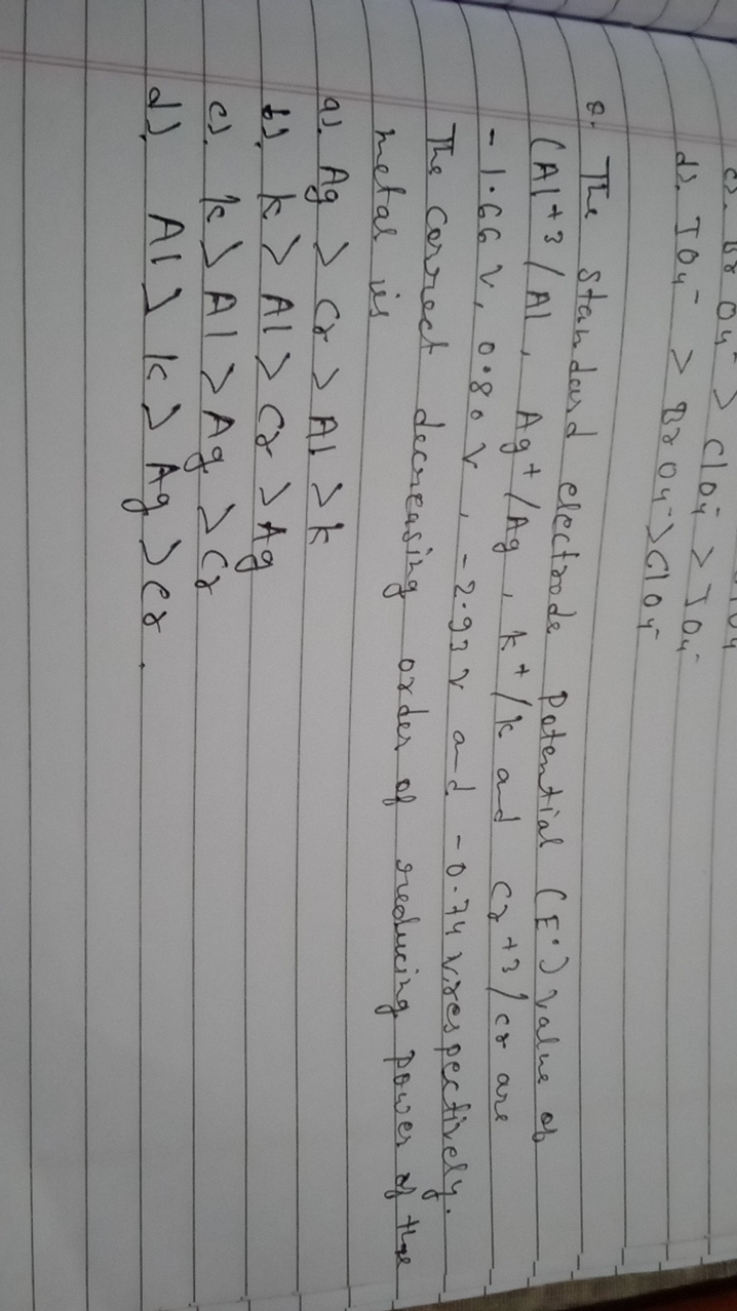 c). Br O4⁻ > ClO4⁻ > IO4⁻
d). IO4⁻ > BrO4⁻ > ClO4⁻
8. The standard electrode potential (E°) value of
(Al⁺³/Al, Ag⁺/Ag, k⁺/k and Cr⁺³/cr are
-1.66 V, 0.80 V, -2.93 V and -0.74 V respectively.
The correct decreasing order of reducing power of the
metal is
a). Ag > Cr > Al > k
b). k > Al > Cr > Ag
c). k > Al > Ag > Cr
d). Al > k > Ag > Cr.